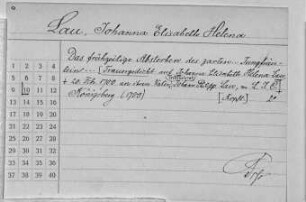 Lau, Johanna Elisabeth Helena
Das frühzeitige Absterben des zarten Jungfräu-
leins ... [Trauergedicht auf Johanna Elisabeth Helena Lau
+ 20. 1700. an ihren Vater Johann Philipp Lau, v. L. J. C.]
Königsberg (1700) [Kopft.] 2°
1 2 3 4
5 6 7 8
9 10 11 12
13 14 15 16
17 18 19 20
21 22 23 24
25 26 27 28
29 30 31 32
33 34 35 36
37 38 39 40